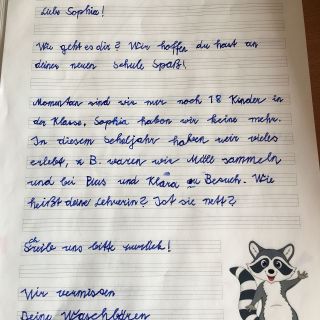 Liebe Sophia!
Wie geht es dir? Wir hoffen du hast an
deiner neuen Schule Spaß!
Momentan sind wir nur noch 18 Kinder in
der Klasse, Sophia haben wir keine mehr.
In diesem Schuljahr haben wir vieles
erlebt, z B. waren wir Müll sammeln
und bei Elias und Klara zu Besuch. Wie
heißt deine Lehrerin? Ist sie nett?
Schreibe uns bitte zurück!
Wir vermissen
Deine Waschbären